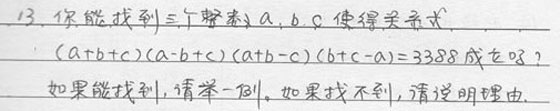 13. 你能找到三个整数 a, b, c 使得关系式
(a+b+c)(a-b+c)(a+b-c)(b+c-a)=3388成立吗?
如果能找到,请举一例。如果找不到,请说明理由.